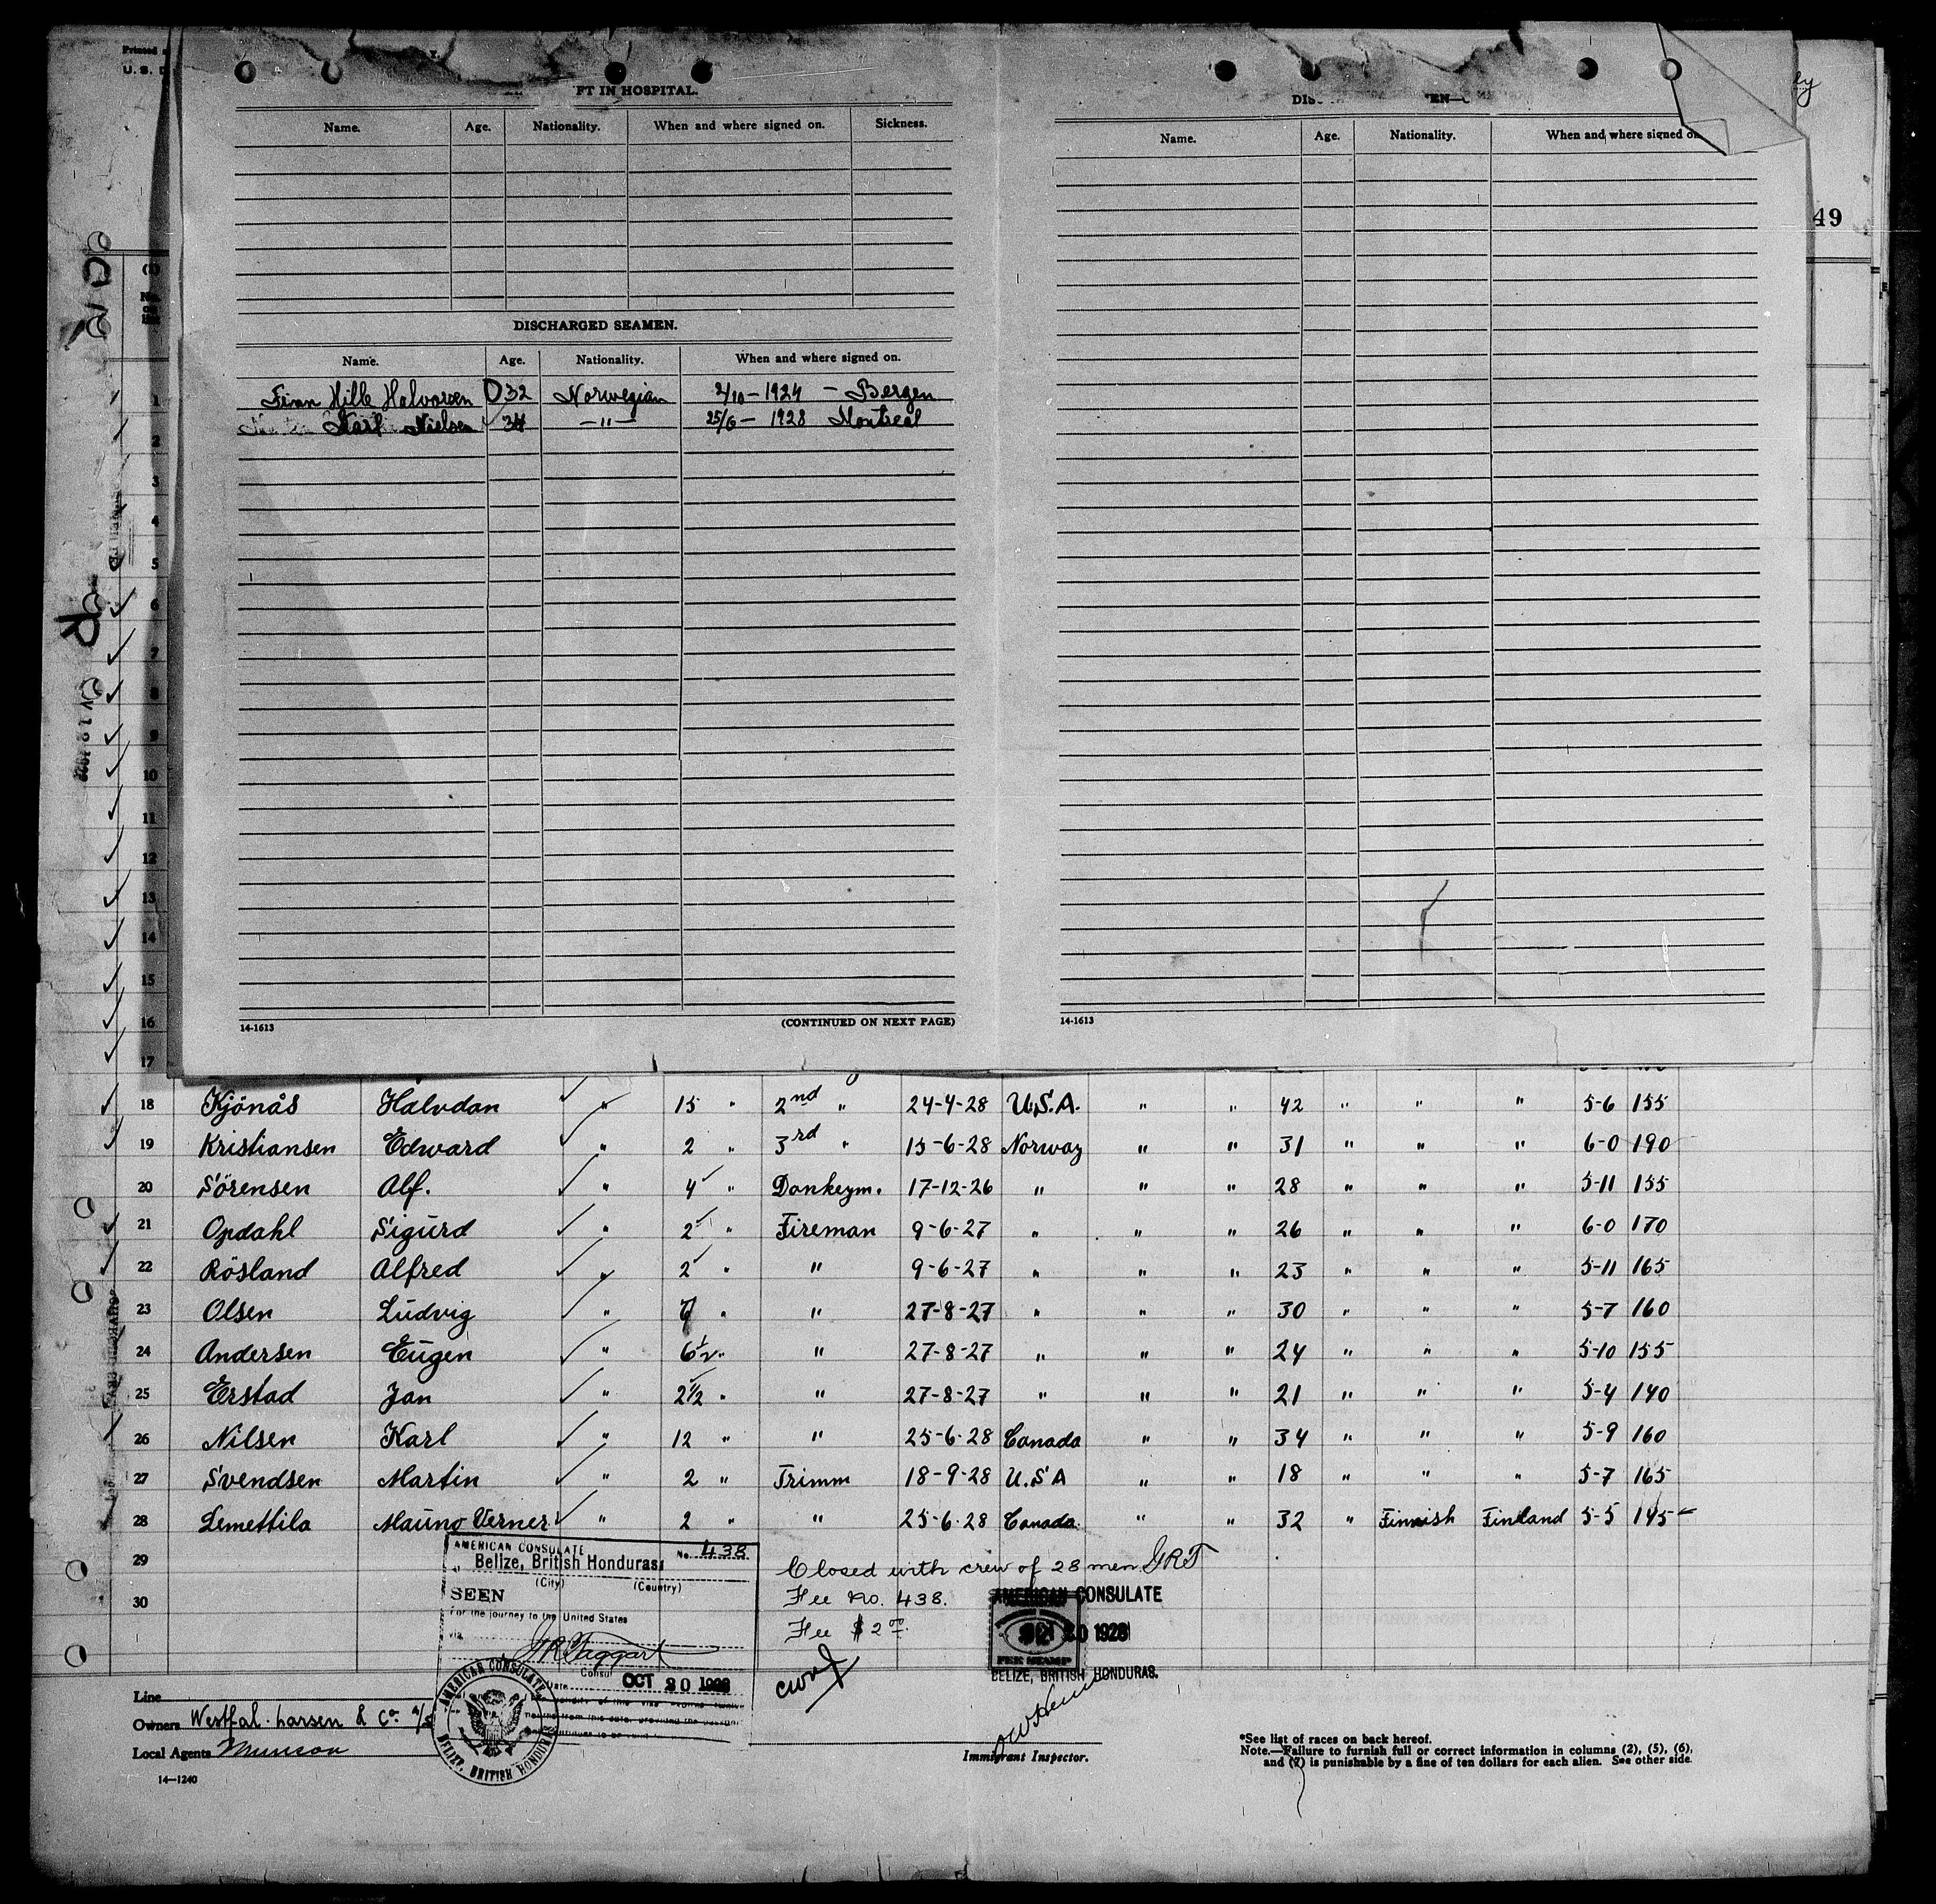 Printed
U. S. D
ly
49
FT IN HOSPITAL.
Name. Age. Nationality. When and where signed on. Sickness.
DISCHARGED SEAMEN.
Name. Age. Nationality. When and where signed on.
Finn Hille Halvorsen 32 Norwegian 2/10-1924 - Bergen
Karl Nielsen 34 -"- 25/6-1928 Montreal
14-1613 (CONTINUED ON NEXT PAGE)
Name. Age. Nationality. When and where signed on
14-1613
1
2
3
4
5
6
7
8
9
10
11
12
13
14
15
16
17
18 Kjönås Halvdan " 15 " 2nd " 24-4-28 U.S.A. " " 42 " " " 5-6 155
19 Kristiansen Edward " 2 " 3rd " 15-6-28 Norway " " 31 " " " 6-0 190
20 Sörensen Alf. " 4 " Donkeym. 17-12-26 " " " 28 " " " 5-11 155
21 Opdahl Sigurd " 2 " Fireman 9-6-27 " " " 26 " " " 6-0 170
22 Rösland Alfred " 2 " " 9-6-27 " " " 23 " " " 5-11 165
23 Olsen Ludvig " " " 27-8-27 " " " 30 " " " 5-7 160
24 Andersen Eugen " 6½ " " 27-8-27 " " " 24 " " " 5-10 155
25 Erstad Jan " 2½ " " 27-8-27 " " " 21 " " " 5-4 140
26 Nilsen Karl " 12 " " 25-6-28 Canada " " 34 " " " 5-9 160
27 Svendsen Martin " 2 " Trimm 18-9-28 U.S.A " " 18 " " " 5-7 165
28 Lemettila Mauno Verner " 2 " " 25-6-28 Canada " " 32 " Finnish Finland 5-5 145
29
30
AMERICAN CONSULATE No. 438
Belize, British Honduras
(City) (Country)
SEEN
For the journey to the United States
via
G R Taggart
Consul
Date OCT 20 1928
AMERICAN CONSULATE
BELIZE, BRITISH HONDURAS
Closed with crew of 28 men GRT
Fee No. 438.
Fee $2.00
AMERICAN CONSULATE
20 1928
FEE STAMP
BELIZE, BRITISH HONDURAS.
Line
Owners Westfal-Larsen & Co. A/S
Local Agents Munson
14-1240
Immigrant Inspector.
*See list of races on back hereof.
Note.—Failure to furnish full or correct information in columns (2), (5), (6),
and (7) is punishable by a fine of ten dollars for each alien. See other side.